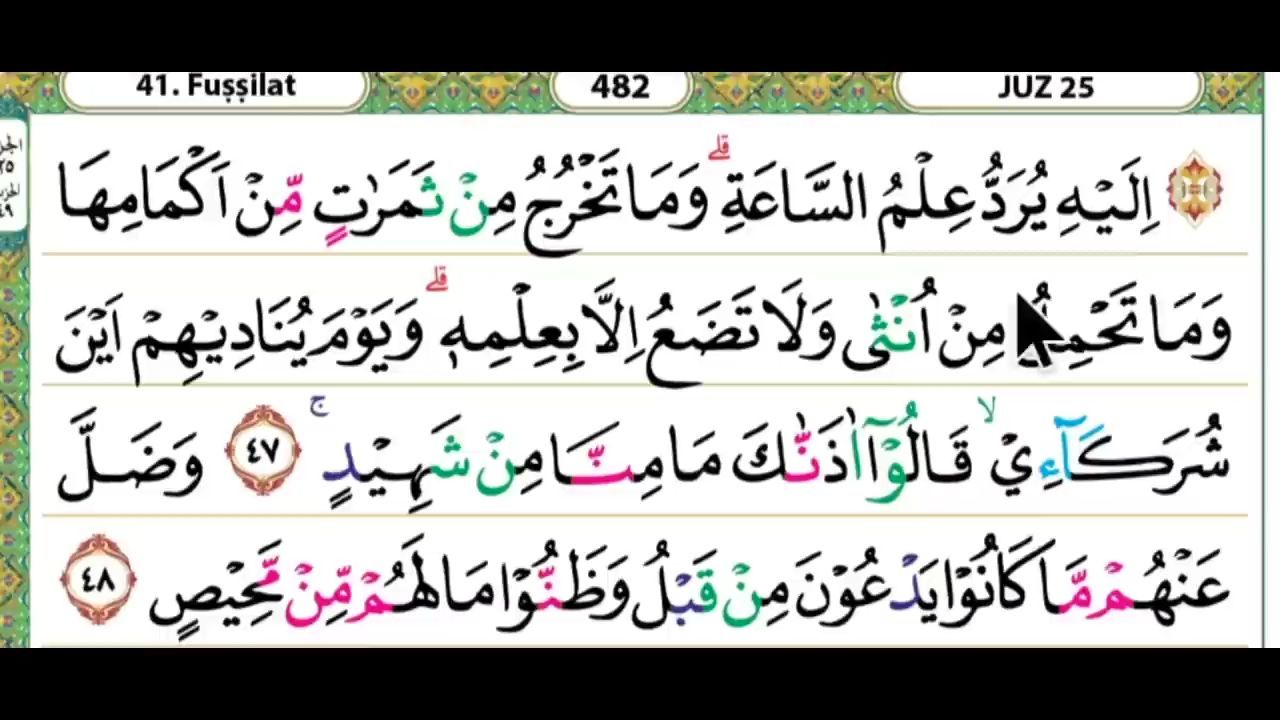 41. Fuṣṣilat
482
JUZ 25
اِلَيْهِ يُرَدُّ عِلْمُ السَّاعَةِ ۗ وَمَا تَخْرُجُ مِنْ ثَمَرٰتٍ مِّنْ اَكْمَامِهَا
وَمَا تَحْمِلُ مِنْ اُنْثٰى وَلَا تَضَعُ اِلَّا بِعِلْمِهٖ ۗ وَيَوْمَ يُنَادِيْهِمْ اَيْنَ
شُرَكَاۤءِيْ ۙ قَالُوْٓا اٰذَنّٰكَ مَا مِنَّا مِنْ شَهِيْدٍ ۚ ٤٧ وَضَلَّ
عَنْهُمْ مَّا كَانُوْا يَدْعُوْنَ مِنْ قَبْلُ وَظَنُّوْا مَا لَهُمْ مِّنْ مَّحِيْصٍ ٤٨